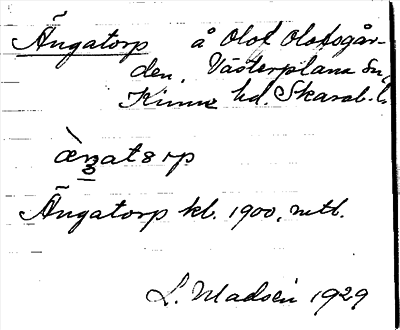 Ängatorp å Olof Olofsgår-
den, Västerplana sn
Kinne hd. Skarab. l.
Ängatorp kl. 1900, mtl.
L. Madsén 1929